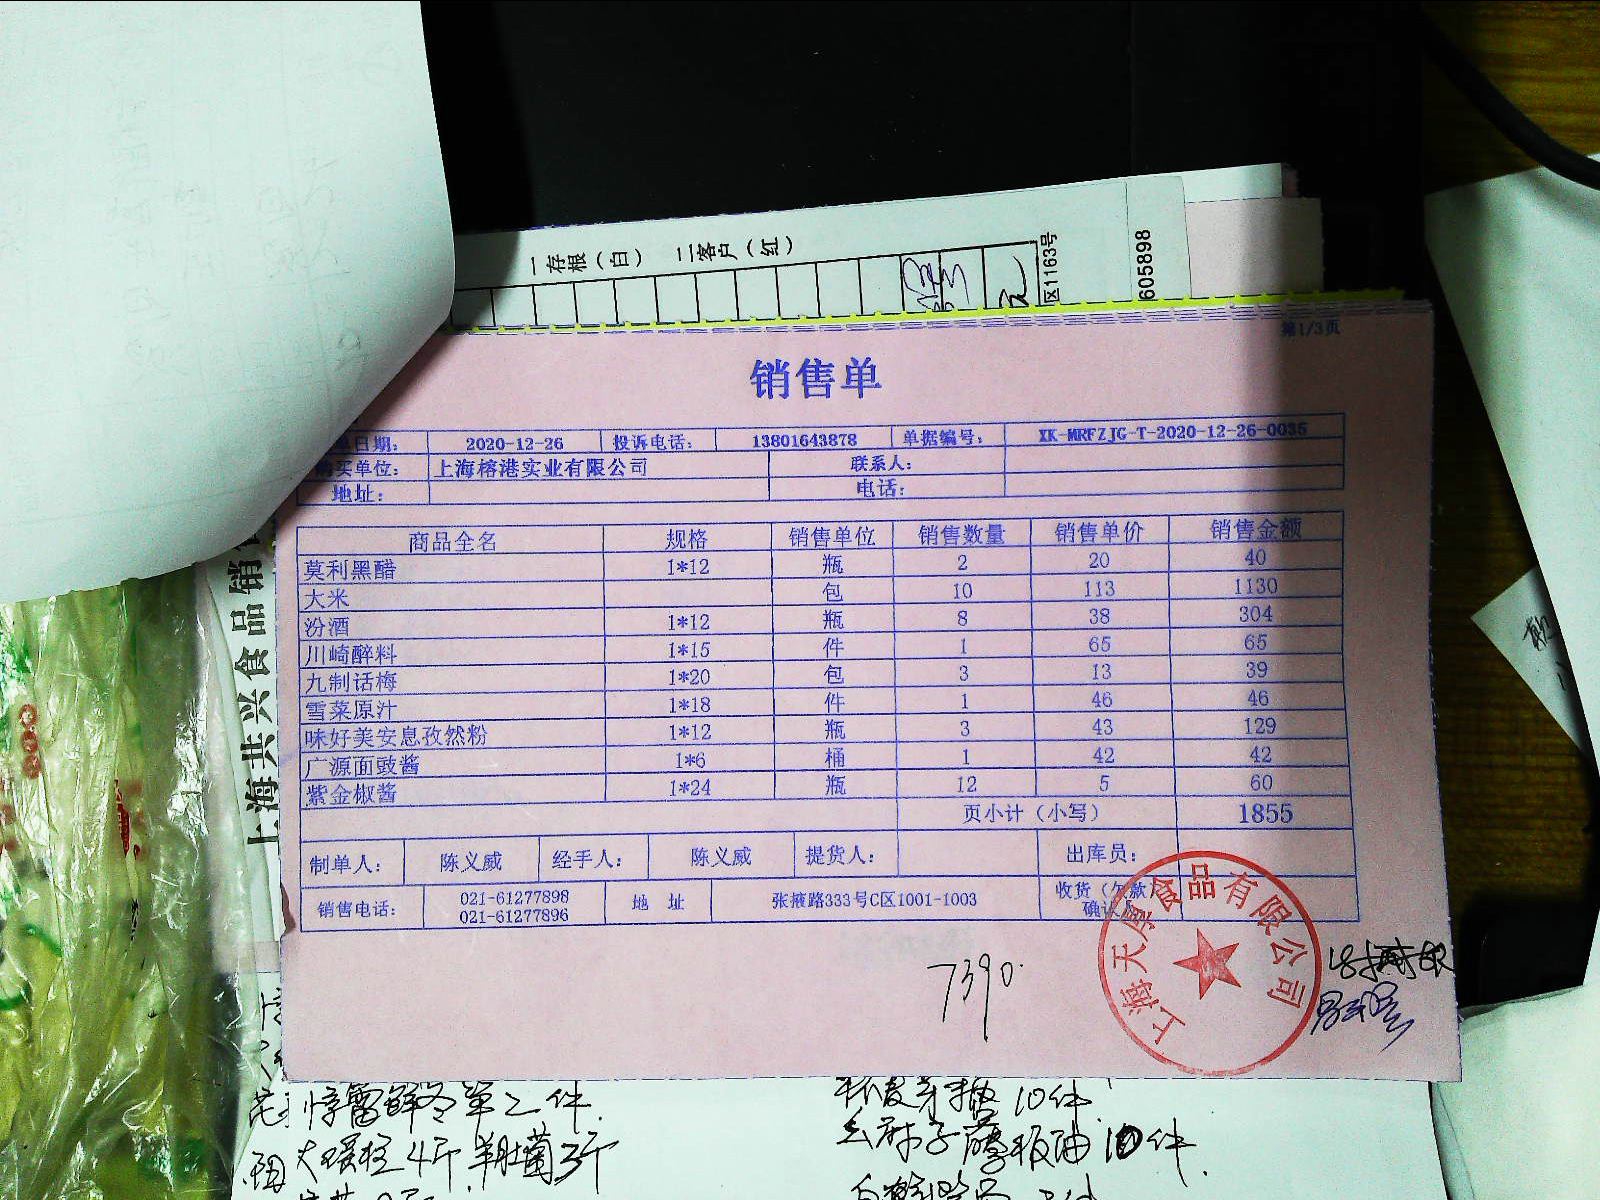 一存根（白） 二客户（红）
区1163号
605898
第1/3页
销售单
单日期： 2020-12-26 投诉电话： 13801643878 单据编号： XK-MRFZJG-T-2020-12-26-0035
购买单位： 上海榕港实业有限公司 联系人：
地址： 电话：
商品全名 规格 销售单位 销售数量 销售单价 销售金额
莫利黑醋 1*12 瓶 2 20 40
大米 包 10 113 1130
汾酒 1*12 瓶 8 38 304
川崎醉料 1*15 件 1 65 65
九制话梅 1*20 包 3 13 39
雪菜原汁 1*18 件 1 46 46
味好美安息孜然粉 1*12 瓶 3 43 129
广源面豉酱 1*6 桶 1 42 42
紫金椒酱 1*24 瓶 12 5 60
页小计（小写） 1855
制单人： 陈义威 经手人： 陈义威 提货人： 出库员：
销售电话： 021-61277898 地 址 张掖路333号C区1001-1003 收货（欠款）
021-61277896 确认
上海天厚食品有限公司
7390
上海共兴食品销
2件
10件
4斤 羊肚菌3斤
10件